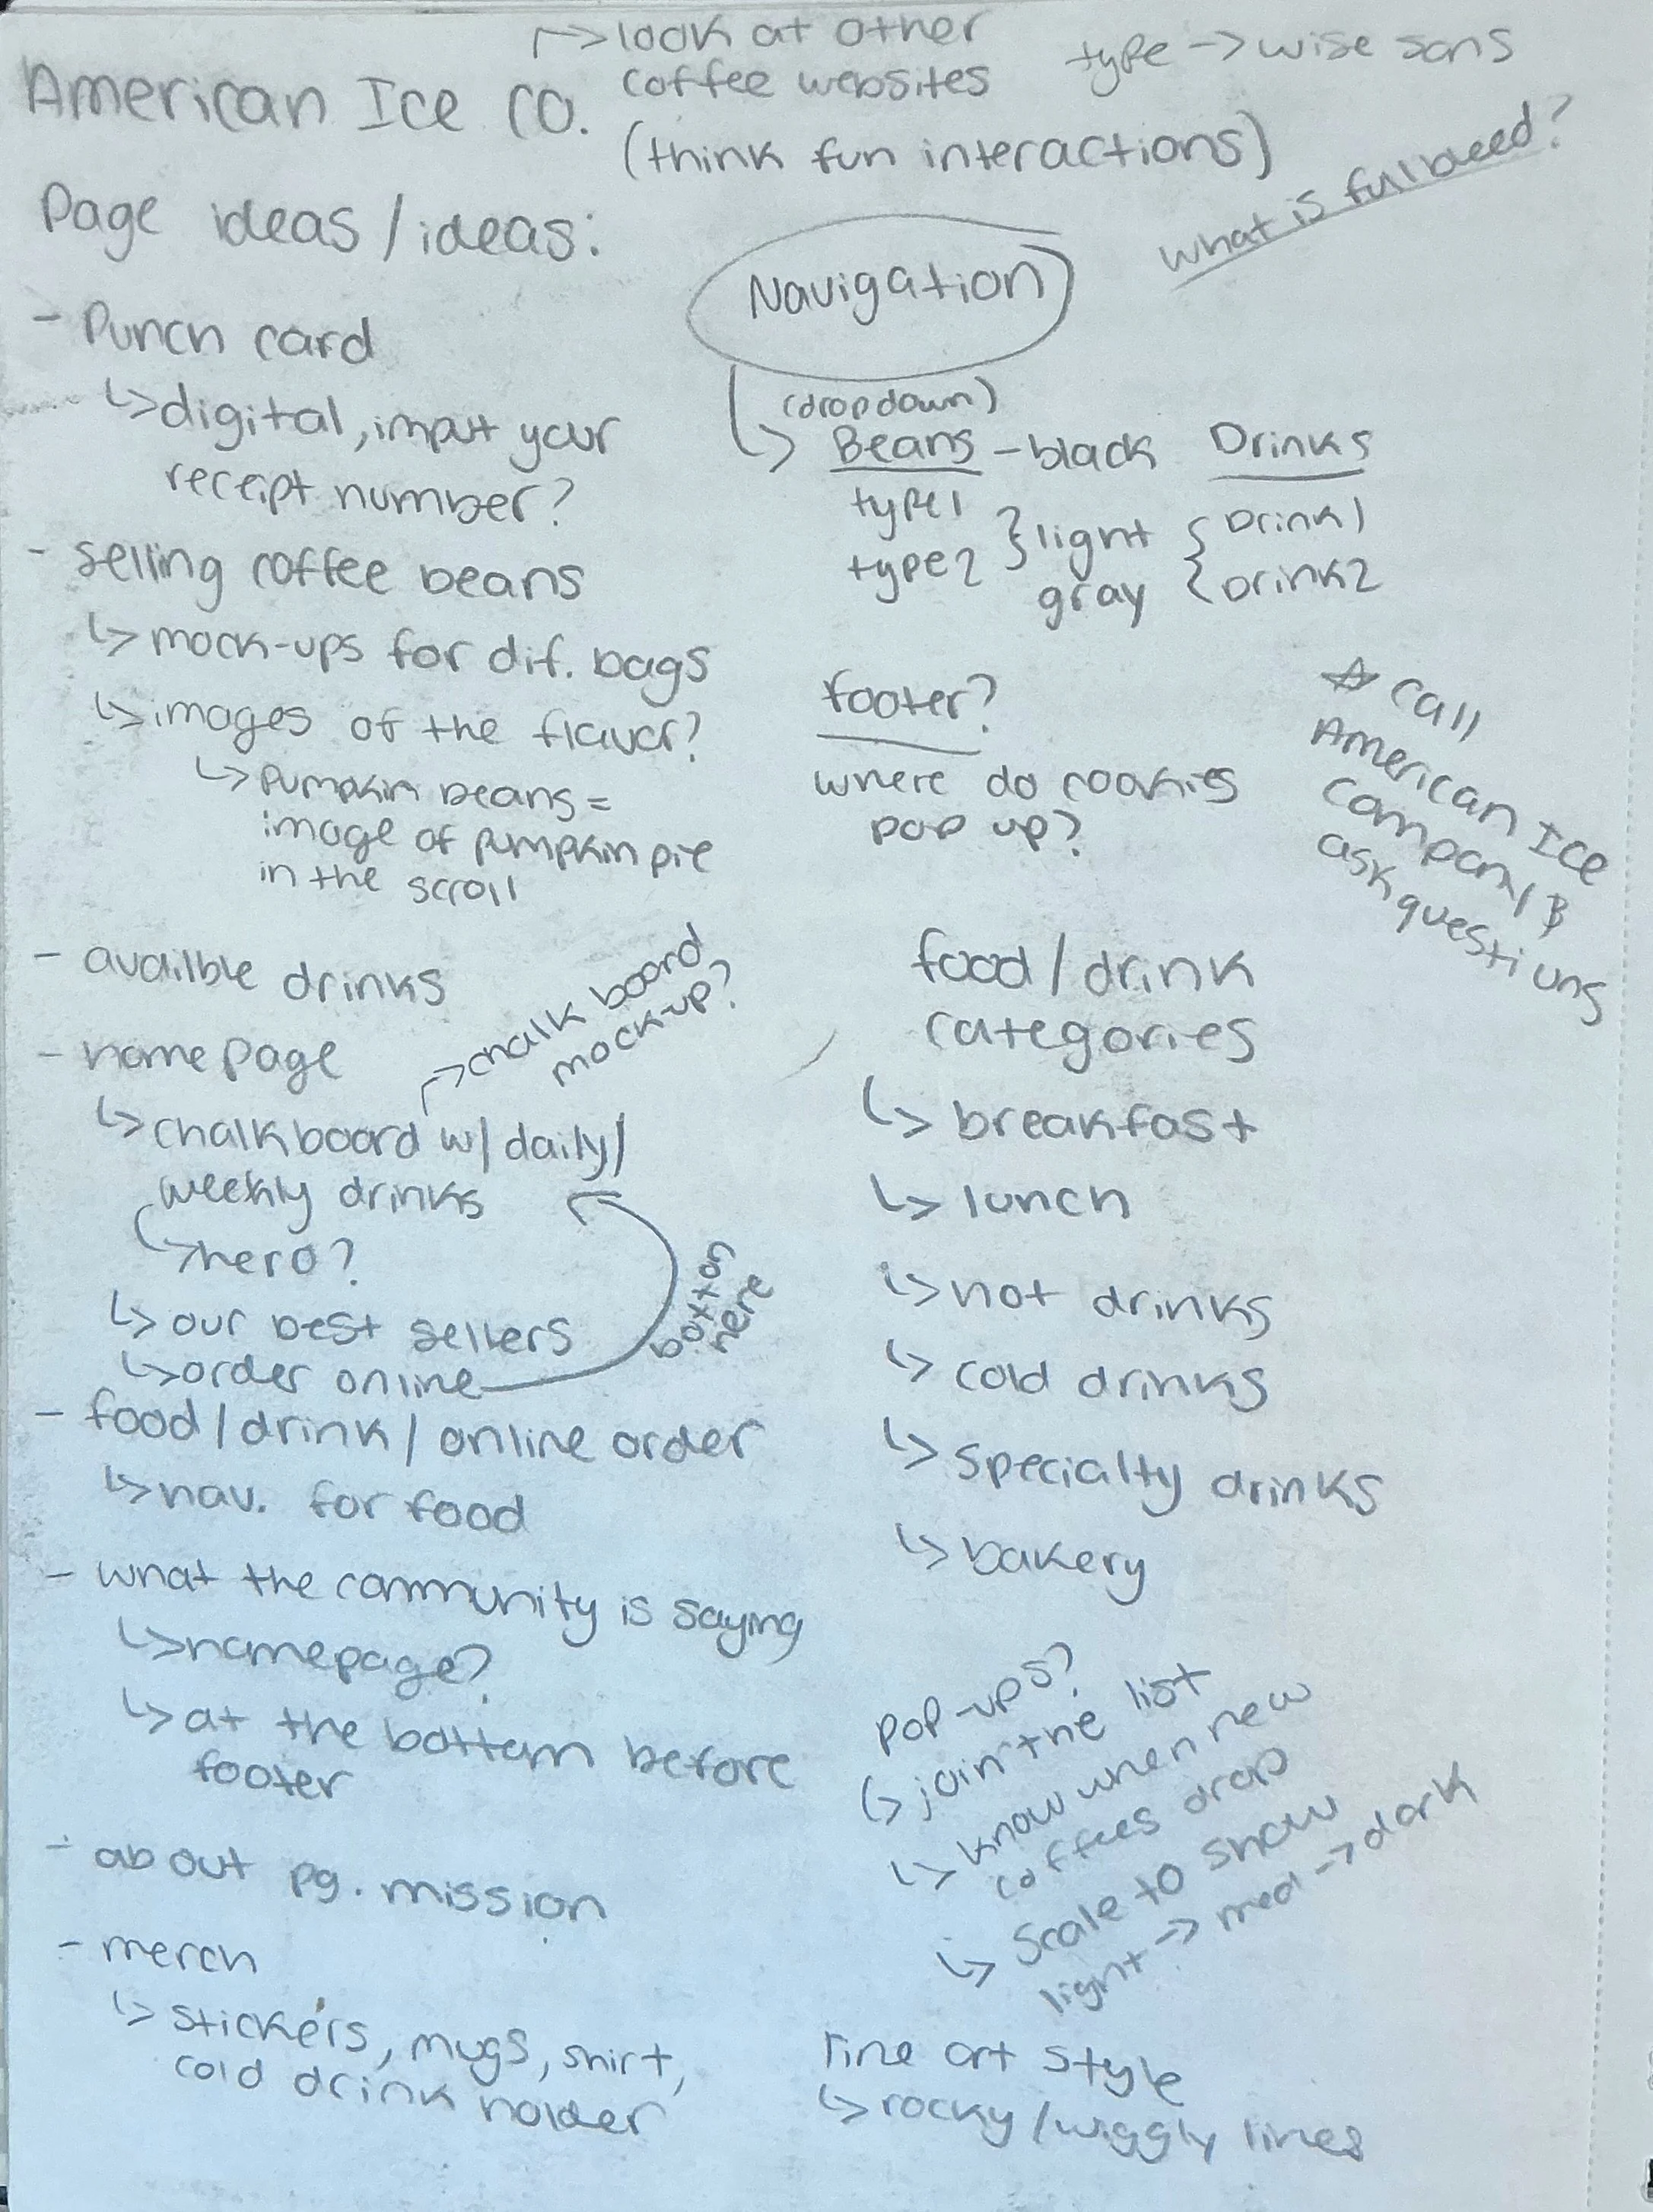 American Ice co.
↱> look at other
coffee websites
(think fun interactions)
type -> wise sans
what is full bleed?
Page ideas / ideas:
- Punch card
↳ digital, imput your
receipt number?
- selling coffee beans
↳ mock-ups for dif. bags
↳ images of the flavor?
↳ pumpkin beans =
image of pumpkin pie
in the scroll
- availble drinks
- home page
↳ chalkboard w/ daily/
weekly drinks
↱> chalk board
mock-up?
↳ hero?
↳ our best sellers
↳ order online
button
here
- food / drink / online order
↳ nav. for food
- what the community is saying
↳ homepage?
↳ at the bottom before
footer
- about pg. mission
- merch
↳ stickers, mugs, shirt,
cold drink holder
Navigation
(dropdown)
↳ Beans - black Drinks
type1 } light { Drink1
type2 gray { Drink2
footer?
where do cookies
pop up?
☆ call
American Ice
Company &
ask questions
food / drink
categories
↳ breakfast
↳ lunch
↳ hot drinks
↳ cold drinks
↳ specialty drinks
↳ bakery
pop-ups?
↳ join the list
↳ know when new
coffees drop
↳ scale to show
light -> med -> dark
line art style
↳ rocky / wiggly lines